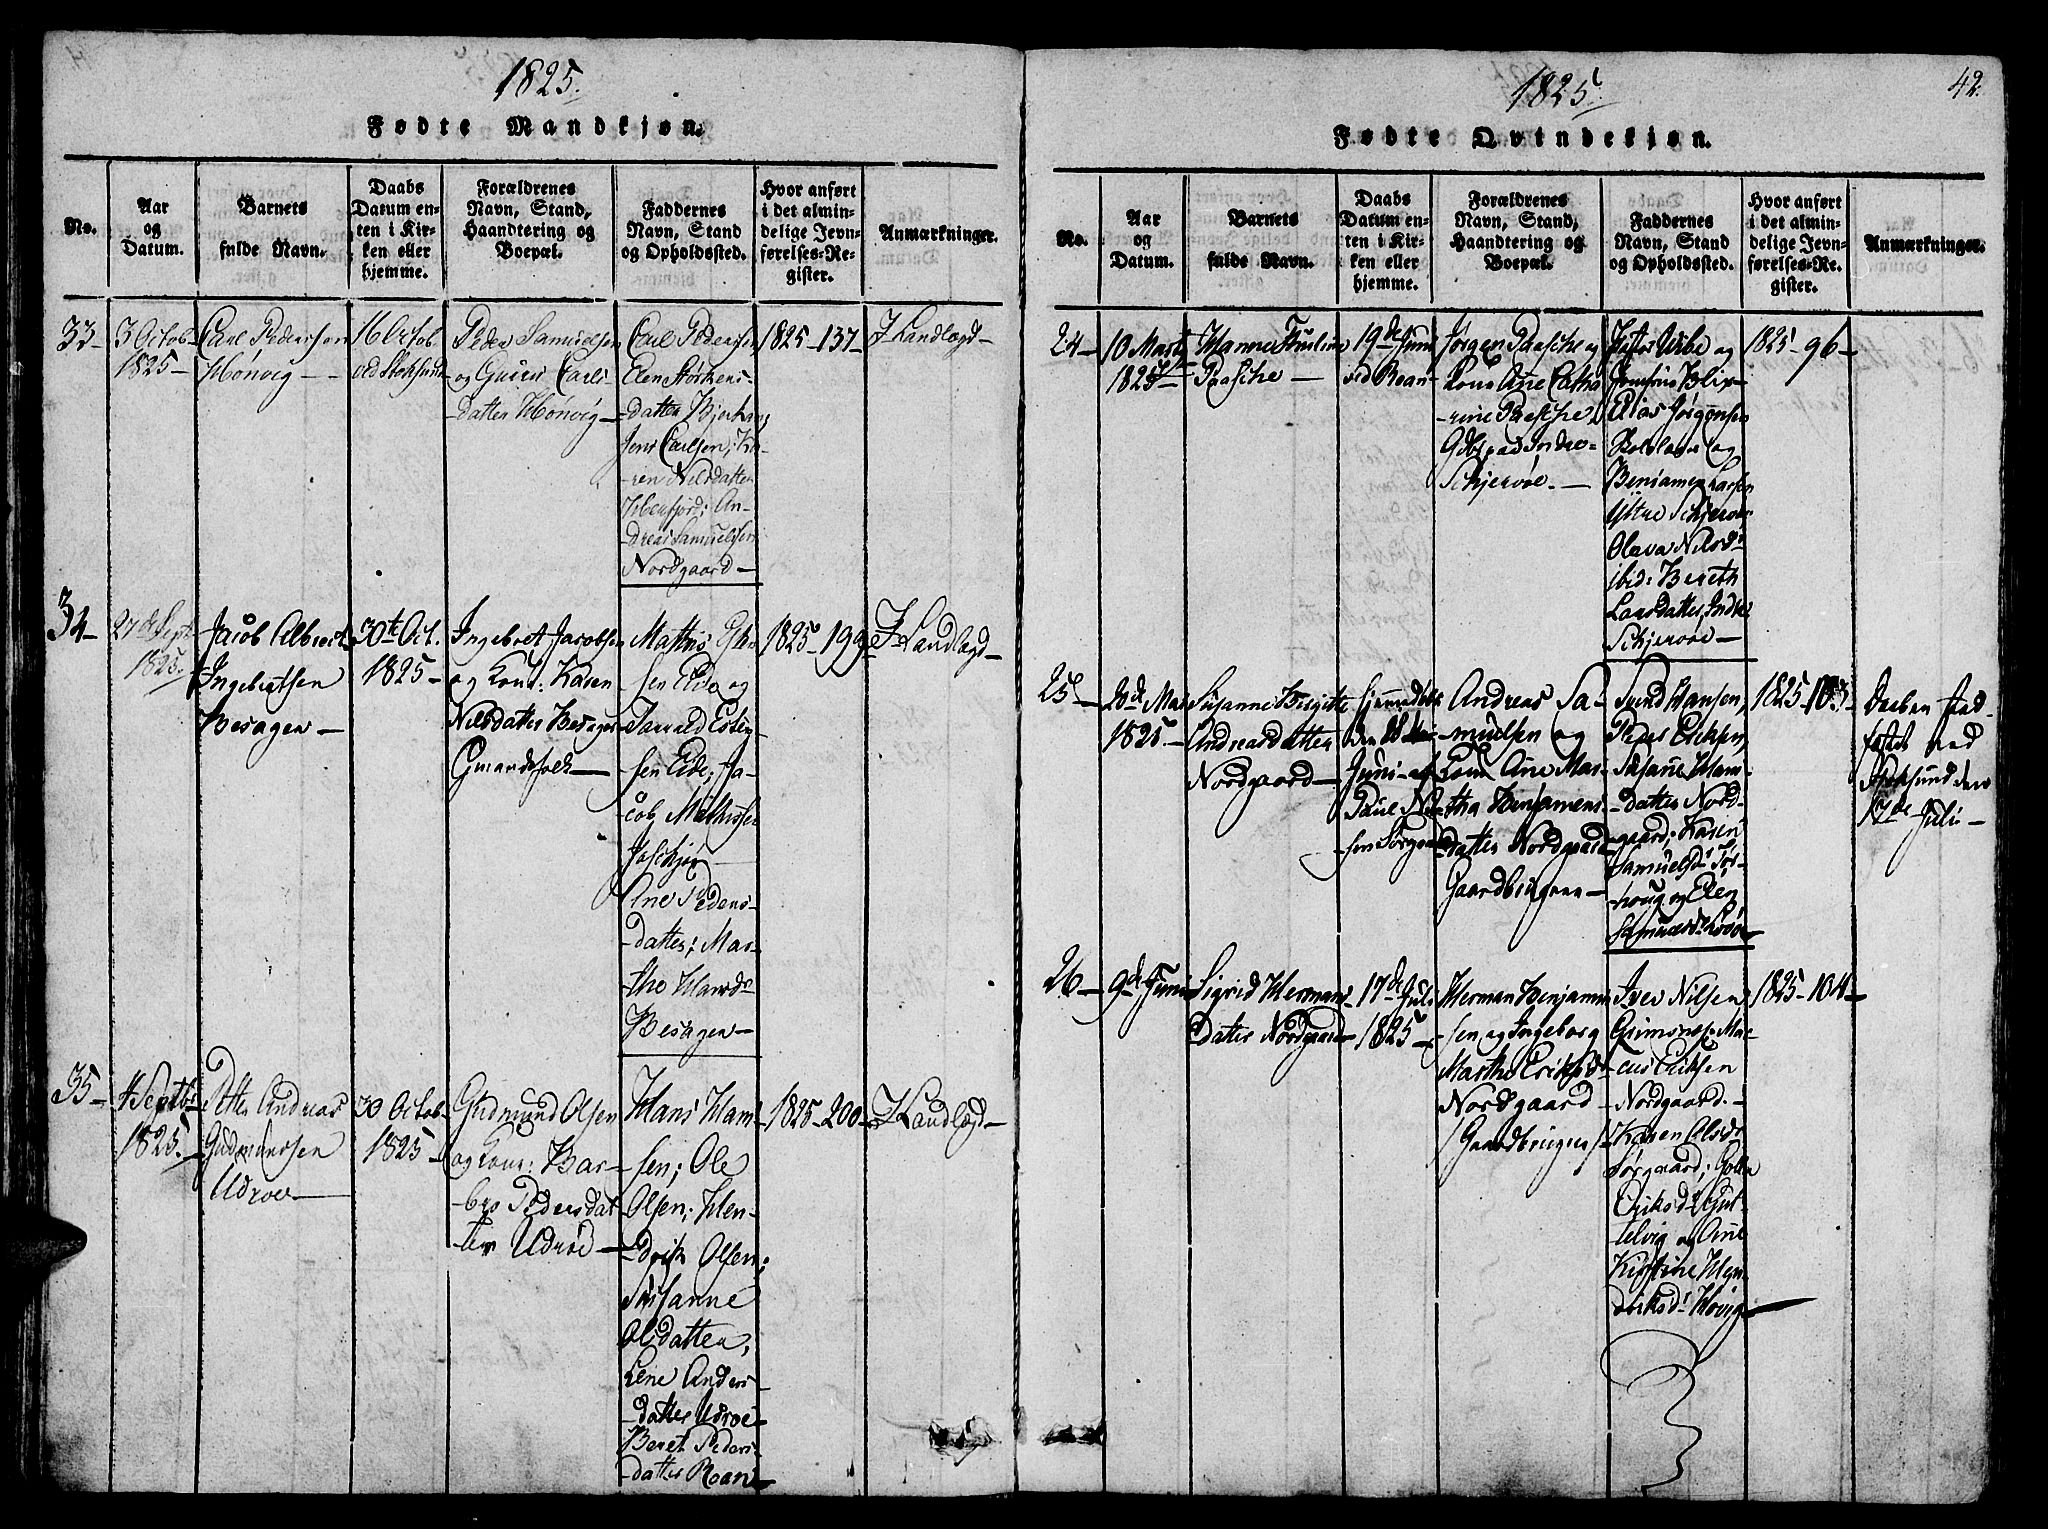 1825.
Fødte Mandkjøn.
No.
Aar
og
Datum.
Barnets
fulde Navn.
Daabs
Datum en-
ten i Kir-
ken eller
hjemme.
Forældrenes
Navn, Stand,
Haandtering og
Boepæl.
Faddernes
Navn, Stand
og Opholdssted.
Hvor anført
i det almin-
delige Jevn-
førelses-Re-
gister.
Anmærkninger.
33-
3 Octob-
1825-
Carl Pedersen
Hönvig -
16 Octob
ved Stoksund
Peder Samuelsen
og Guren Carls-
datter Hönvig-
Carl Pedersen
Elen Störkens-
-datter Bjerkan;
Jens Carlsen; Ka-
-ren Nilsdatter
Hbenfjord; An-
dreas Samuelsen
Nordgaard-
1825-137-
I Landlægd-
34-
27de Sept.
1825.
Jacob Albert
Ingebretsen
Besagen-
30te Oct.
1825-
Ingebret Jacobsen
og Kone: Karen
Nilsdatter Besagen
Gmandsfolk-
Mathis Es-
sen Eide og
Esten-
sen Eide; Ja-
cob Mathissen
Ane Peders-
-datter; Mar-
-the Hansdr
Besagen-
1825-199-
I Landlægd-
35-
4 Septbr
1825.-
Petter Andreas
Gudmundsen
Udroe-
30 Octob-
1825-
Gudmund Olsen
og Kone: Bar-
bro Pedersdat-
ter Udröe-
Hans Han-
sen; Ole
Olsen; Hen-
-drik Olsen;
Susanne
Olsdatter,
Lene Anders-
-datter Udroe
Beret Peders-
-datter Roan-
1825-200-
I Landlægd-
1825.
42.
Fødte Qvindekjøn.
No.
Aar
og
Datum.
Barnets
fulde Navn.
Daabs
Datum en-
ten i Kir-
ken eller
hjemme.
Forældrenes
Navn, Stand,
Haandtering og
Boepæl.
Faddernes
Navn, Stand
og Opholdssted.
Hvor anført
i det almin-
delige Jevn-
førelses-Re-
gister.
Anmærkninger.
24-
10 Marts
1825
Hanna
Paasche-
19de Juni
ved Roan-
Jørgen Paasche og
Kone Ane Catha
-rine Paasche
Indre-
Schjervöe.-
Hr Wibe og
Jomfrue Blix-
Elias Jørgensen
og
Benjamin Larsen
Ytre Schjervöe
Olava Nilsdr
ibid: Bereth
Larsdatter Indre
Schjervöe-
1825-96-
25-
20de Mai
1825-
Susanne Birgitte
Andreasdatter
Nordgaard-
hjemmedöbt
den
Juni af
Paul Nil-
sen Sørgaard
Andreas Sa-
muelsen og
Kone Ane Mar-
-tha Benjamins-
datter Nordgaard
Gaardbrugere-
Svend Hansen,
Susane Han-
-datter Nord-
gaard; Karen
Samuelsdr Tör-
houg og Elen
Samuelsdr
1825-103
Daaben stad-
fæstet ved
Stoksund den
17de Juli-
26-
9de Juni
Sigrid Hermans-
datter Nordgaard
17de Juli
1825-
Herman Benjamin
sen og Ingeborg
Marthe Eriksdr
Nordgaard
/Gaardbruger/
Iver Nilsen
Grimsnes; Mar-
cus Eriksen
Nordgaard.-
Karen Olsdr
Sørgaard;
Eriksdr Kjut-
telvig og Ane
Kirstine Hen-
driksdr Hövig-
1825-104-